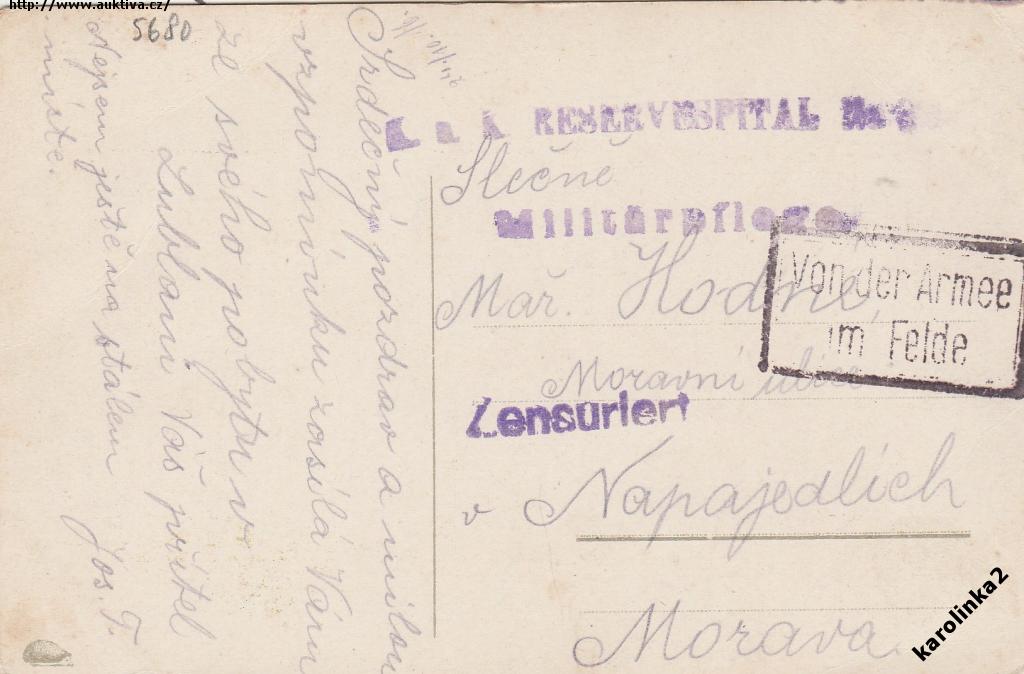 http://www.auktiva.cz/
5680
Srdečný pozdrav a milou
vzpomínku zasílá Vám
ze svého pobytu v
Lublani Váš přítel
Jos. T.
Nejsem ještě na stálem
místě.
K u K RESERVESPITAL
Slečně
Militärpflege
Mař. Hodné
Von der Armee
im Felde
Moravní ulice
Zensuriert
v Napajedlích
Morava.
karolinka2